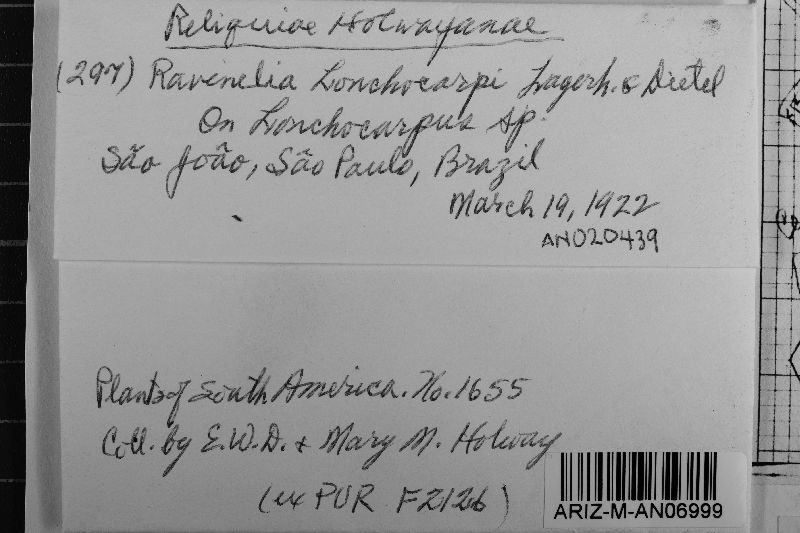 Reliquiae Holwayanae
(297) Ravenelia Lonchocarpi Lagerh. & Dietel
On Lonchocarpus sp.
São João, São Paulo, Brazil
March 19, 1922
AN020439
Plants of South America. No. 1655
Coll. by E.W.D. & Mary M. Holway
(ex PUR F2126)
ARIZ-M-AN06999